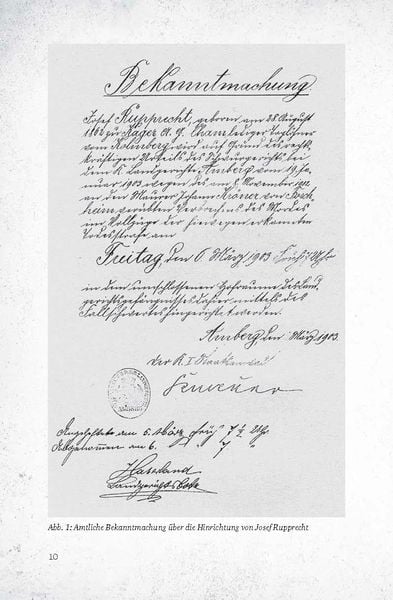 Bekanntmachung.
Josef Rupprecht, geboren am 28. August
1862 zu Räger A. G. Cham lediger Taglöhner
von wird auf Grund des recht-
kräftigen Urteils des Schwurgerichts bei
dem K. Landgerichte Amberg vom 19. Ja-
nuar 1903 wegen des am 8. November 1902
an dem Maurer Johann von
verübten Verbrechens des Mordes
im Vollzuge der hiewegen erkannten
Todesstrafe am
Freitag, den 6. März 1903 Uhr
in dem umschlossenen Hofraume des Land-
gerichtsgefängnisses dahier mittels des
Fallschwertes hingerichtet werden.
Amberg, den März 1903.
der K. I. Staatsanwalt
Angeheftet am 5. März früh 7 ½ Uhr
Abgenommen am 6. " " 7 "
Landgerichtsbote
Abb. 1: Amtliche Bekanntmachung über die Hinrichtung von Josef Rupprecht
10